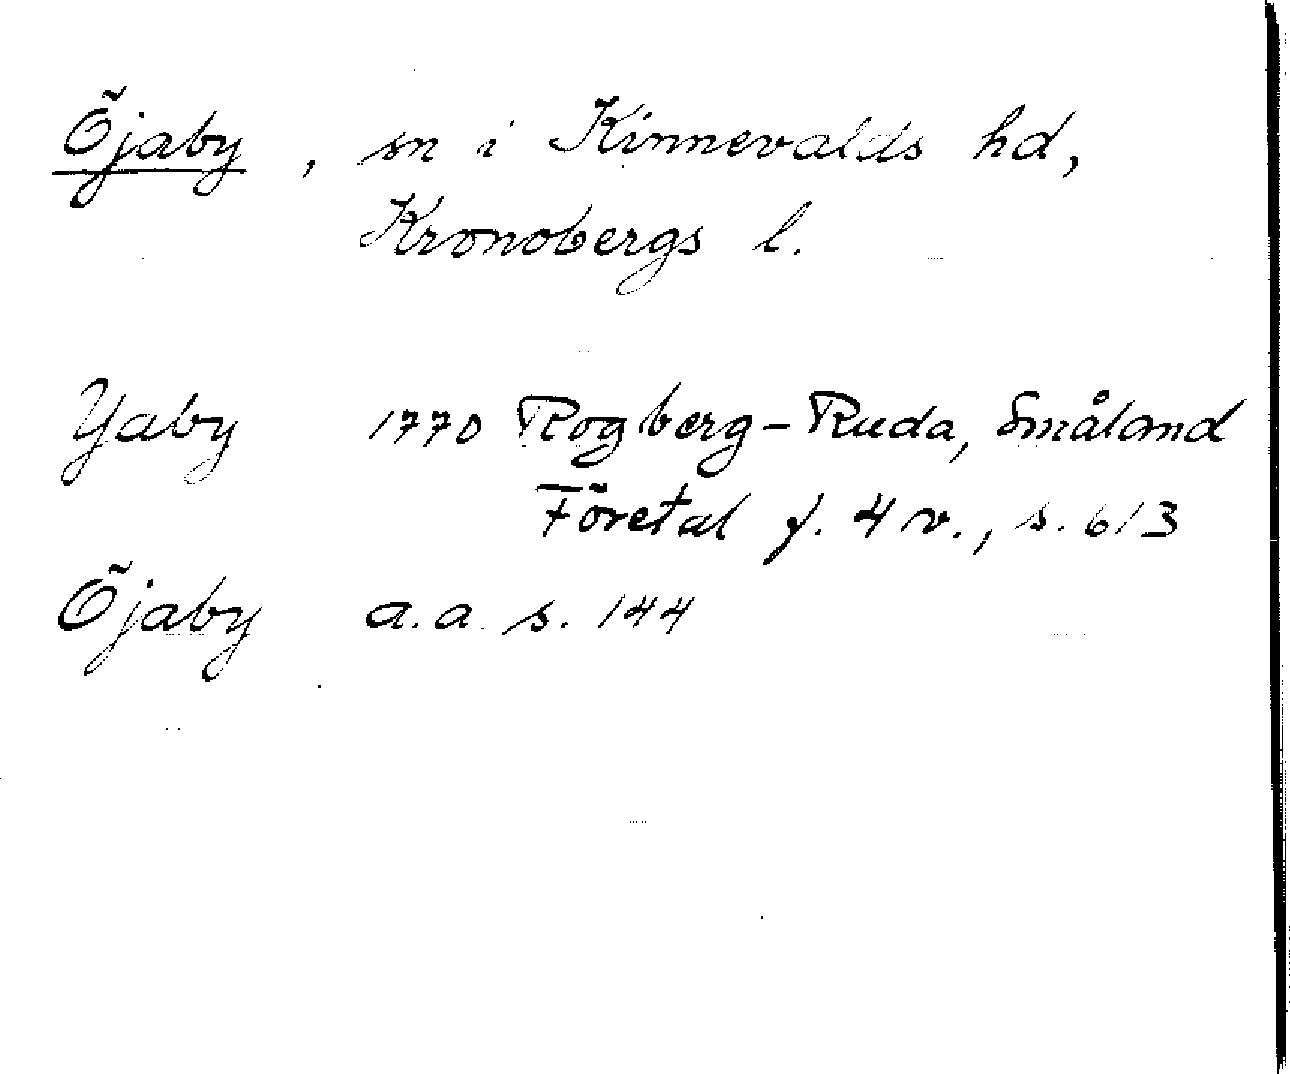 Öjaby, sn i Kinnevalds hd,
Kronobergs l.
Yaby 1770 Rogberg-Ruda, Småland
Företal f. 4 v., s. 613
Öjaby a.a. s. 144